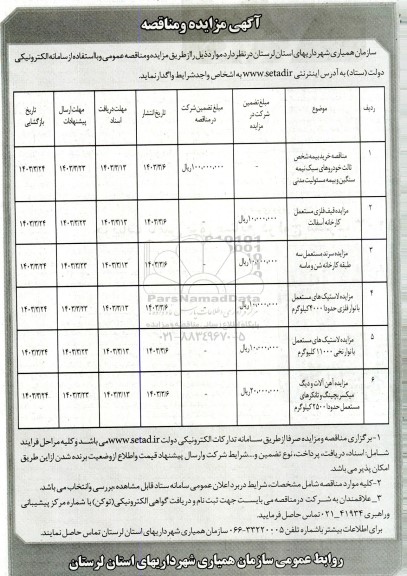 آگهی مزایده و مناقصه
سازمان همیاری شهرداریهای استان لرستان در نظر دارد موارد ذیل را از طریق مزایده و مناقصه عمومی و با استفاده از سامانه الکترونیکی
دولت (ستاد) به آدرس اینترنتی www.setadir به اشخاص واجد شرایط واگذار نماید.
ردیف موضوع مبلغ تضمین شرکت در مزایده مبلغ تضمین شرکت در مناقصه تاریخ انتشار مهلت دریافت اسناد مهلت ارسال پیشنهادات تاریخ بازگشایی
۱ مناقصه خرید بیمه شخص ثالث خودروهای سبک نیمه سنگین و بیمه مسئولیت مدنی - ۱۰۰,۰۰۰,۰۰۰ ریال ۱۴۰۳/۳/۶ ۱۴۰۳/۳/۱۳ ۱۴۰۳/۳/۲۳ ۱۴۰۳/۳/۲۴
۲ مزایده قیف فلزی مستعمل کارخانه آسفالت ۱۰,۰۰۰,۰۰۰ ریال - ۱۴۰۳/۳/۶ ۱۴۰۳/۳/۱۳ ۱۴۰۳/۳/۲۳ ۱۴۰۳/۳/۲۴
۳ مزایده سرند مستعمل سه طبقه کارخانه شن و ماسه ۱۰,۰۰۰,۰۰۰ ریال - ۱۴۰۳/۳/۶ ۱۴۰۳/۳/۱۳ ۱۴۰۳/۳/۲۳ ۱۴۰۳/۳/۲۴
۴ مزایده لاستیک های مستعمل با نوار فلزی حدودا ۴۰۰۰ کیلوگرم ۱۰,۰۰۰,۰۰۰ ریال - ۱۴۰۳/۳/۶ ۱۴۰۳/۳/۱۳ ۱۴۰۳/۳/۲۳ ۱۴۰۳/۳/۲۴
۵ مزایده لاستیک های مستعمل با نوار نخی ۱۱۰۰۰ کیلوگرم ۱۰,۰۰۰,۰۰۰ ریال - ۱۴۰۳/۳/۶ ۱۴۰۳/۳/۱۳ ۱۴۰۳/۳/۲۳ ۱۴۰۳/۳/۲۴
۶ مزایده آهن آلات و دیگ میکسر بچینگ و تانکرهای مستعمل حدودا ۲۵۰۰ کیلوگرم ۲۰,۰۰۰,۰۰۰ ریال - ۱۴۰۳/۳/۶ ۱۴۰۳/۳/۱۳ ۱۴۰۳/۳/۲۳ ۱۴۰۳/۳/۲۴
ParsNamadData
۰۲۱-۸۸۳۴۹۶۷۰-۵
۱- برگزاری مناقصه و مزایده صرفا از طریق سامانه تدارکات الکترونیکی دولت www.setad.ir می باشد و کلیه مراحل فرایند
شامل: اسناد، دریافت، پرداخت، نوع تضمین و... شرایط شرکت و ارسال پیشنهاد قیمت و اطلاع از وضعیت برنده شدن از این طریق
امکان پذیر می باشد.
۲- کلیه موارد مناقصه شامل مشخصات، شرایط در برد اعلان عمومی سامانه ستاد قابل مشاهده بررسی و انتخاب می باشد.
۳- علاقمندان به شرکت در مناقصه می بایست جهت ثبت نام و دریافت گواهی الکترونیکی (توکن) با شماره مرکز پیشیبانی
و راهبری ۴۱۹۳۴_۰۲۱ تماس حاصل فرمایید.
برای اطلاعات بیشتر با شماره تلفن ۳۳۲۲۰۰۰۵-۰۶۶ سازمان همیاری شهرداریهای استان لرستان تماس حاصل نمایند.
روابط عمومی سازمان همیاری شهرداریهای استان لرستان